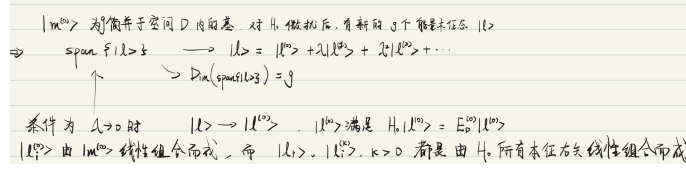 |m^{(0)}> 为简并子空间 D 内的基. 对 H_0 微扰后, 有新的 g 个能量本征态 |l>
⇒ span {|l>} → |l> = |l^{(0)}> + λ|l^{(1)}> + λ²|l^{(2)}> + ···
↘ Dim(span{|l>}) = g
条件为 λ→0 时 |l> → |l^{(0)}> , |l^{(0)}> 满足 H_0|l^{(0)}> = E_D^{(0)}|l^{(0)}>
|l_i^{(0)}> 由 |m^{(0)}> 线性组合而成, 而 |l_i>, |l_i^{(k)}>, k>0 都是由 H_0 所有本征右矢线性组合而成